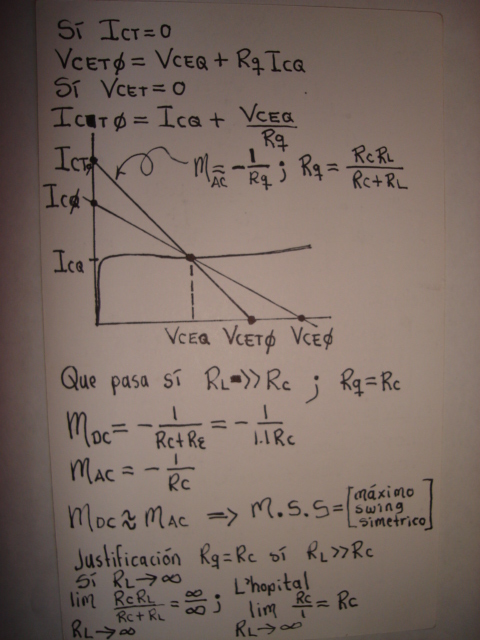 Sí ICT=0
VCETØ = VCEQ + Rq ICQ
Sí VCET=0
ICTØ = ICQ + VCEQ/Rq
ICTØ
M_AC = -1/Rq ; Rq = RCRL/RC+RL
ICØ
ICQ
VCEQ VCETØ VCEØ
Que pasa sí RL=>>RC ; Rq=RC
MDC = -1/RC+RE = -1/1.1RC
MAC = -1/RC
MDC ≈ MAC => M.S.S = [máximo
swing
simetrico]
Justificación Rq=RC sí RL>>RC
Sí RL→∞ L'hopital
lim RCRL/RC+RL = ∞/∞ ; lim RC/1 = RC
RL→∞ RL→∞